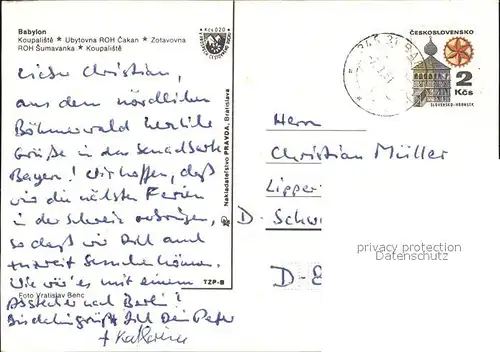 Babylon
Koupaliště * Ubytovna ROH Čakan * Zotavovna
ROH Šumavanka * Koupaliště
Kčs 0,20
Lieber Christian,
aus dem nördlichen
Böhmerwald herzliche
Grüße in das
Bayern! Wir hoffen, daß
wir die nächsten Ferien
in der Schweiz verbringen,
so daß wir Dich auch
besuchen können.
Wie wär's mit einem
Abstecher nach Berlin?
grüßt Dich Dein Peter
+ Katharina
Foto Vratislav Benc
Nakladatelství PRAVDA, Bratislava
TZP-B
ČESKOSLOVENSKO
2
Kčs
SLOVENSKO-HRONSEK
Herrn
Christian Müller
Lipper
D. Schw
D-E
privacy protection
Datenschutz